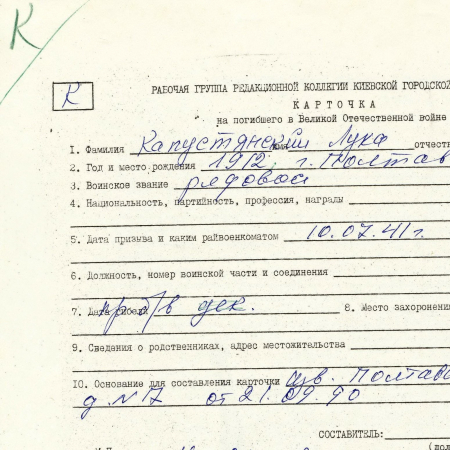 К
К
РАБОЧАЯ ГРУППА РЕДАКЦИОННОЙ КОЛЛЕГИИ КИЕВСКОЙ ГОРОДСКОЙ
КАРТОЧКА
на погибшего в Великой Отечественной войне
1. Фамилия Капустянский имя Лука отчест
2. Год и место рождения 1912 г. Полтав
3. Воинское звание рядовой
4. Национальность, партийность, профессия, награды
5. Дата призыва и каким райвоенкоматом 10.07.41г.
6. Должность, номер воинской части и соединения
7. Дата гибели пр б/в дек. 8. Место захоронения
9. Сведения о родственниках, адрес местожительства
10. Основание для составления карточки изв. Полтавс
д. N17 от 21.09.90
СОСТАВИТЕЛЬ:
(дол